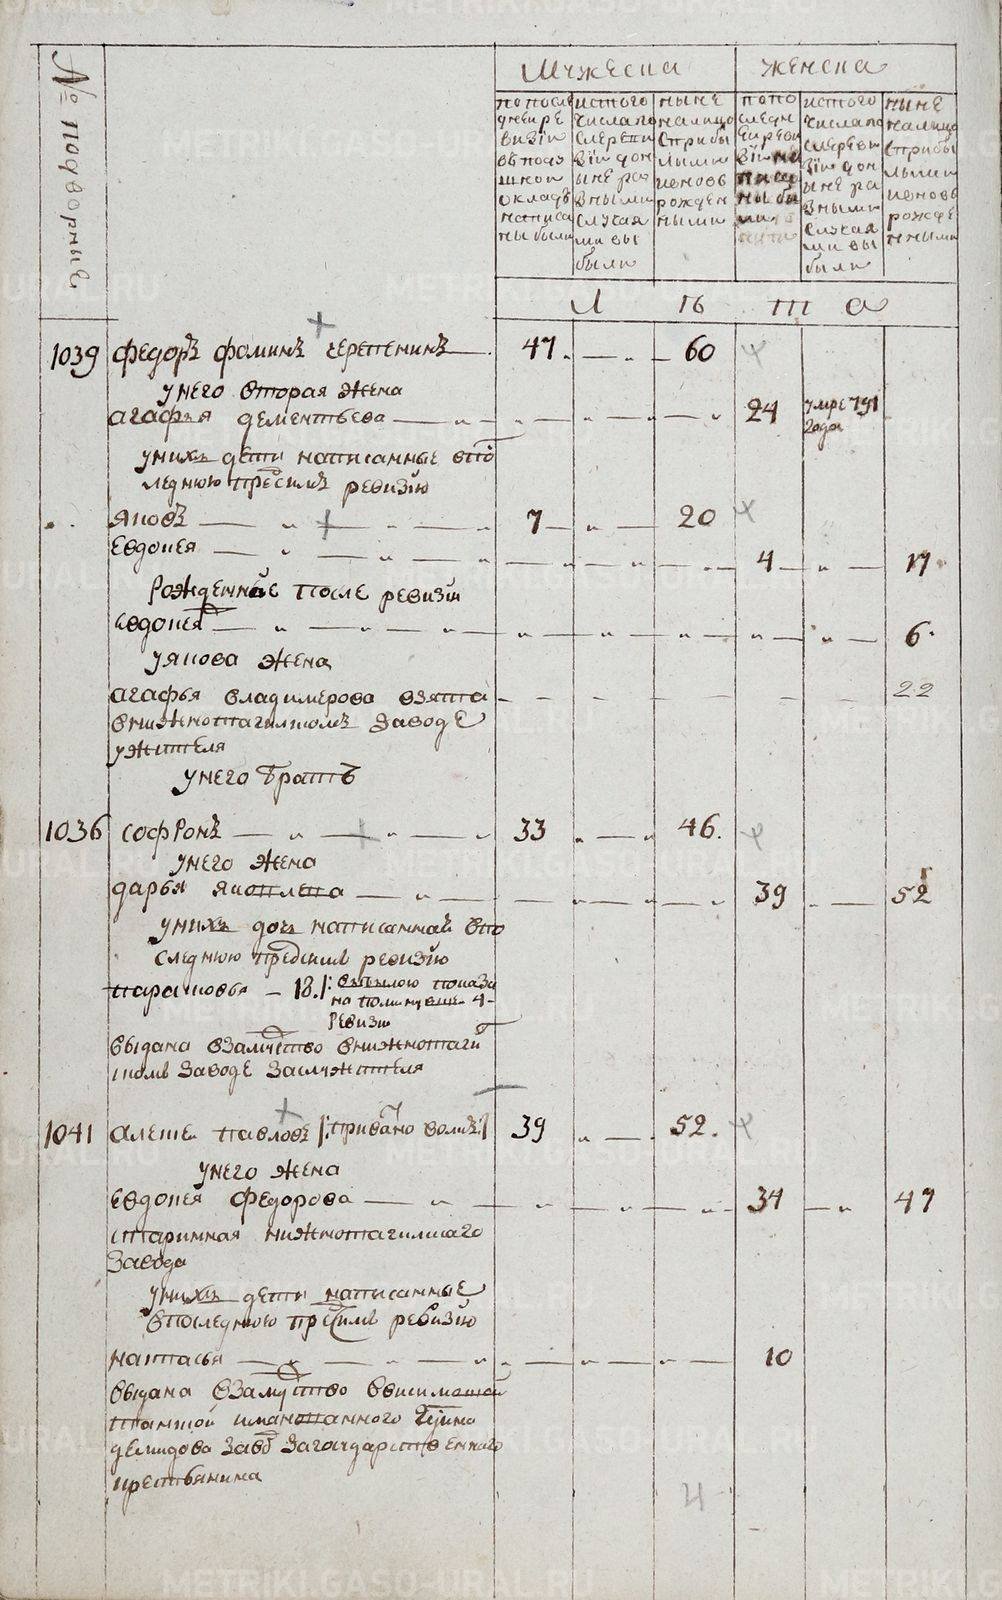 № подворные
Мужеска
женска
по после
дней ре
визіи
въ поду
шной
окладъ
написа
ны были
ис того
числа по
сле реви
зіи до н
ыне ра
зными
случая
ми вы
были
ныне
налицо
с прибы
лыми
и новь
рожден
ными
по по
следн
ей реви
зіи на
писа
ны бы
ли
ис того
числа по
сле реви
зіи до н
ыне ра
зными
случая
ми вы
были
ныне
налицо
с прибы
лыми
и новь
рожде
нными
Л ѣ т а
1039 федоръ фоминъ черепенинъ 47 60
у него вторая жена
агафья дементьева 24 умре 791
года
у нихъ дети написанные въ по
леднюю пресимъ ревизію
яковъ 7 20
евдокея 4 17
Рожденные после ревизіи
евдокея 6
у якова жена
агафья владимерова взята 22
в нижнотагилскомъ заводе
у жителя
у него братъ
1036 софронъ 33 46
у него жена
дарья яковлева 39 52
у нихъ дочь написанная в по
следнюю предсимъ ревизію
парасковья 18
на
ревизіи
выдана взамужство в нижнотаги
лскомъ заводе за жителя
1041 алексе павловъ 39 52
у него жена
евдокея федорова 34 47
старинная нижнотагилскаго
завода
у нихъ дети написанные
в последнюю пресимъ ревизію
настасья 10
выдана взамужство в висимошай
танской
демидова завод за государственнаго
крестьянина
4
METRIKI.GASO-URAL.RU